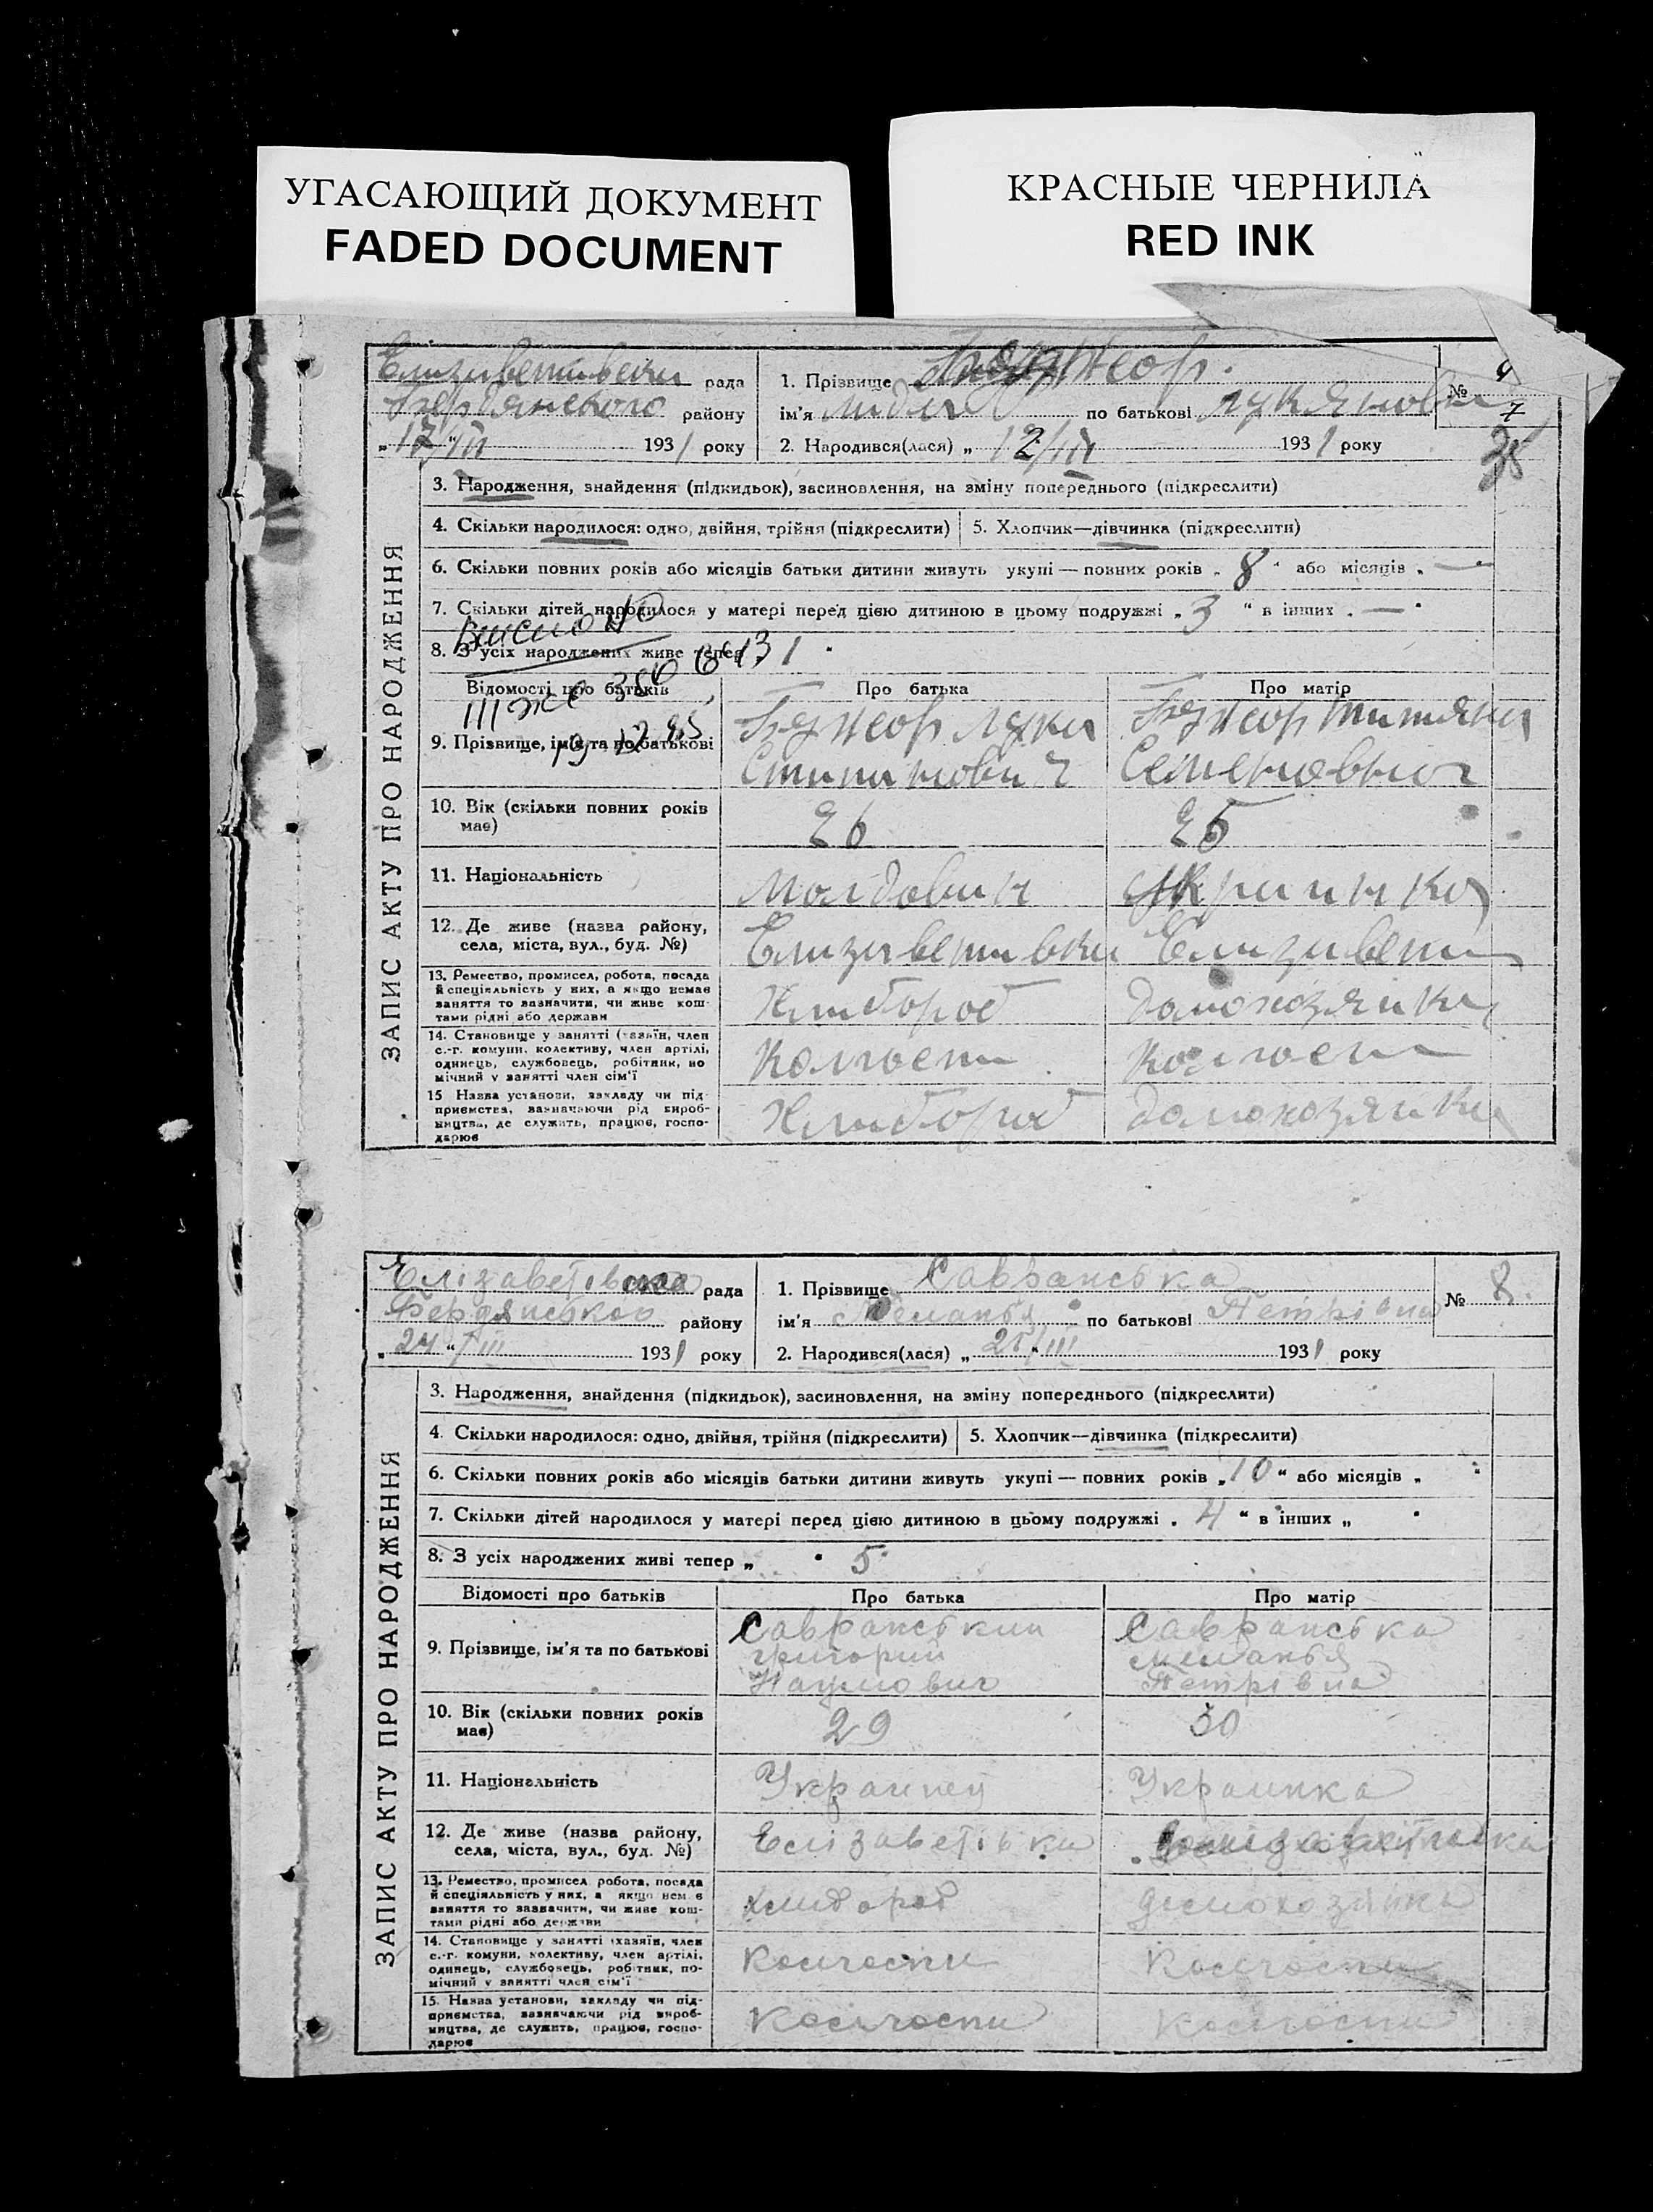 УГАСАЮЩИЙ ДОКУМЕНТ
FADED DOCUMENT
КРАСНЫЕ ЧЕРНИЛА
RED INK
рада
Бердянского району
„17“/III 1931 року
1. Прізвище
ім'я Лидия по батькові Лукяновна
2. Народився(лася) „12/III 1931 року
№ 7
ЗАПИС АКТУ ПРО НАРОДЖЕННЯ
3. Народження, знайдення (підкидьок), засиновлення, на зміну попереднього (підкреслити)
4. Скільки народилося: одно, двійня, трійня (підкреслити)
5. Хлопчик—дівчинка (підкреслити)
6. Скільки повних років або місяців батьки дитини живуть укупі — повних років „ 8 “ або місяців „ — “
7. Скільки дітей народилося у матері перед цією дитиною в цьому подружжі „ 3 “ в інших „ — “
8. З усіх народжених живе тепер
Відомості про батьків
Про батька
Про матір
9. Прізвище, ім'я та по батькові
Бужеор Лука
Степанович
Бужеор Татяна
Семеновна
10. Вік (скільки повних років має)
26
25
11. Національність
Молдован
Украинка
12. Де живе (назва району, села, міста, вул., буд. №)
Елизаветовка
Елизавет
13. Ремество, промисел, робота, посада й спеціяльність у них, а якщо немає заняття то зазначити, чи живе коштами рідні або держави
Хлебороб
Домохозяйка
14. Становище у занятті (хазяїн, член с.-г. комуни, колективу, член артілі, одинець, службовець, робітник, помічний у занятті член сім'ї
Колгосп
Колгосп
15 Назва установи, закладу чи підприємства, зазначаючи рід виробництва, де служить, працює, господарює
Хлебороб
Домохозяйка
рада
Бердянського району
„24“/III 1931 року
1. Прізвище Савранська
ім'я Меланья по батькові Петрівна
2. Народився(лася) „ “ III 1931 року
№ 8.
ЗАПИС АКТУ ПРО НАРОДЖЕННЯ
3. Народження, знайдення (підкидьок), засиновлення, на зміну попереднього (підкреслити)
4. Скільки народилося: одно, двійня, трійня (підкреслити)
5. Хлопчик—дівчинка (підкреслити)
6. Скільки повних років або місяців батьки дитини живуть укупі — повних років „ 10 “ або місяців „ “
7. Скільки дітей народилося у матері перед цією дитиною в цьому подружжі „ 4 “ в інших „ “
8. З усіх народжених живі тепер „ “ 5
Відомості про батьків
Про батька
Про матір
9. Прізвище, ім'я та по батькові
Савранский
Григорий
Наумович
Савранська
Меланья
Петрівна
10. Вік (скільки повних років має)
29
30
11. Національність
Украинец
Украинка
12. Де живе (назва району, села, міста, вул., буд. №)
Елізаветівка
13. Ремество, промисел, робота, посада й спеціяльність у них, а якщо немає заняття то зазначити, чи живе коштами рідні або держави
хлебороб
домохозяйка
14. Становище у занятті (хазяїн, член с.-г. комуни, колективу, член артілі, одинець, службовець, робітник, помічний у занятті член сім'ї
Колгосп
Колгосп
15. Назва установи, закладу чи підприємства, зазначаючи рід виробництва, де служить, працює, господарює
Колгосп
Колгосп